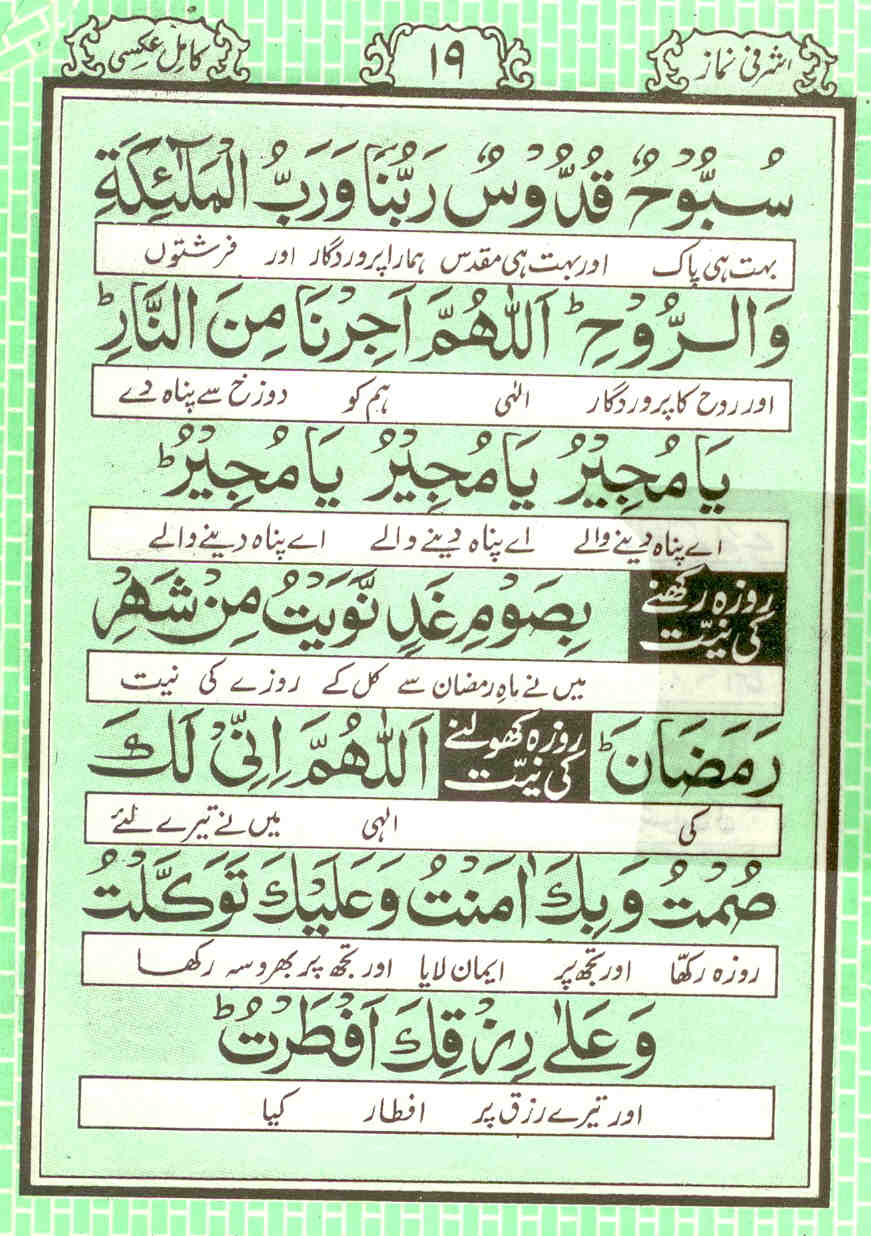 اشرفی نماز
۱۹
کامل عکسی
سُبُّوْحٌ قُدُّوْسٌ رَبُّنَا وَرَبُّ الْمَلٰٓئِکَةِ
بہت ہی پاک اور بہت ہی مقدس ہمارا پروردگار اور فرشتوں
وَالرُّوْحِ ؕ اَللّٰهُمَّ اَجِرْنَا مِنَ النَّارِ ؕ
اور روح کا پروردگار الٰہی ہم کو دوزخ سے پناہ دے
یَا مُجِیْرُ یَا مُجِیْرُ یَا مُجِیْرُ ؕ
اے پناہ دینے والے اے پناہ دینے والے اے پناہ دینے والے
روزہ رکھنے
کی نیّت
بِصَوْمِ غَدٍ نَّوَیْتُ مِنْ شَهْرِ
میں نے ماہِ رمضان سے کل کے روزے کی نیت
رَمَضَانَ ؕ
روزہ کھولنے
کی نیّت
اَللّٰهُمَّ اِنِّیْ لَكَ
کی الہی میں نے تیرے لئے
صُمْتُ وَبِكَ اٰمَنْتُ وَعَلَیْكَ تَوَکَّلْتُ
روزہ رکھا اور تجھ پر ایمان لایا اور تجھ پر بھروسہ رکھا
وَعَلٰی رِزْقِكَ اَفْطَرْتُ ؕ
اور تیرے رزق پر افطار کیا